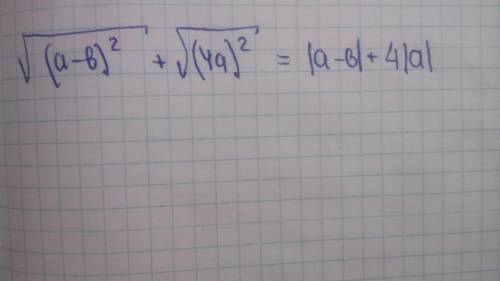 √(a-b)² + √(4a)² = |a-b| + 4|a|